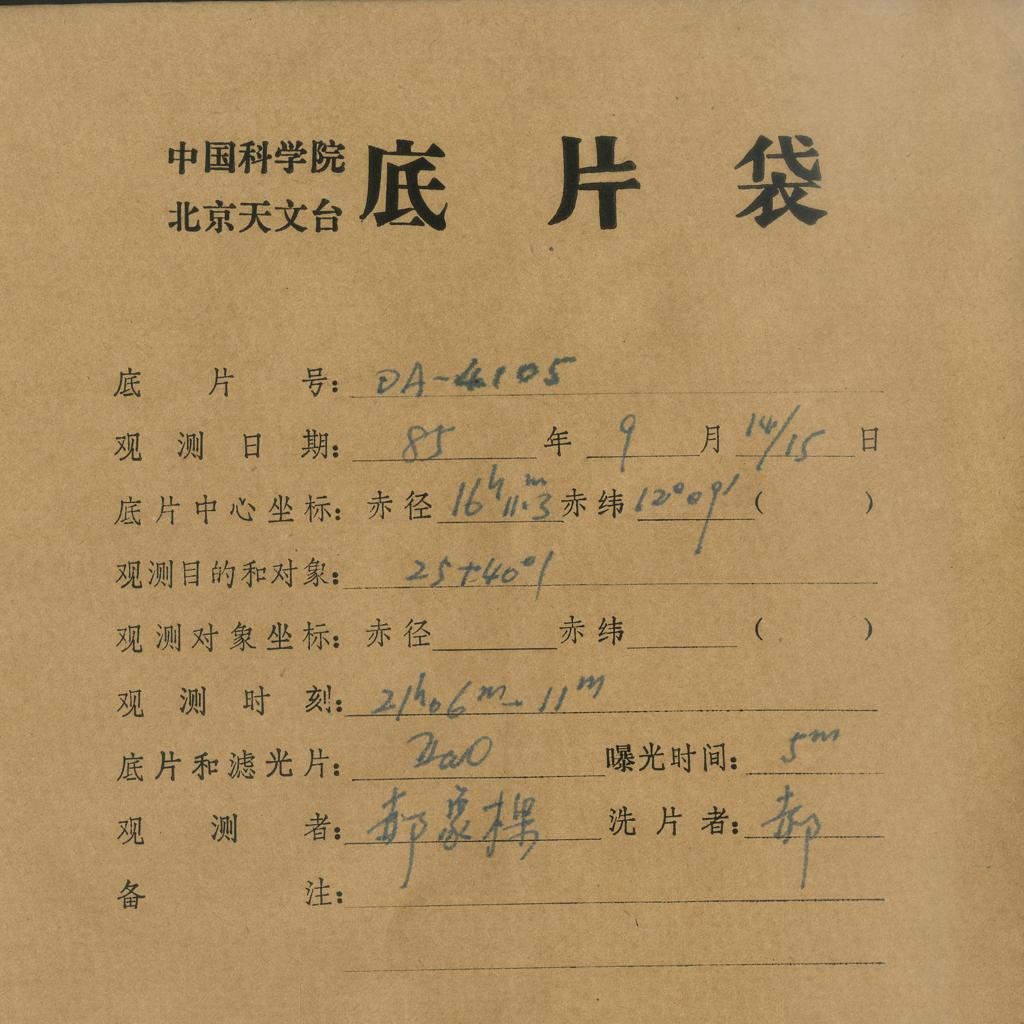 中国科学院
北京天文台
底片袋
底片号: DA-4105
观测日期: 85 年 9 月 14/15 日
底片中心坐标: 赤径 16h11m.3 赤纬 12°09' ( )
观测目的和对象: 25+40°1
观测对象坐标: 赤径 赤纬 ( )
观测时刻: 21h06m-11m
底片和滤光片: IIaO 曝光时间: 5m
观测者: 郝象樑 洗片者: 郝
备注: